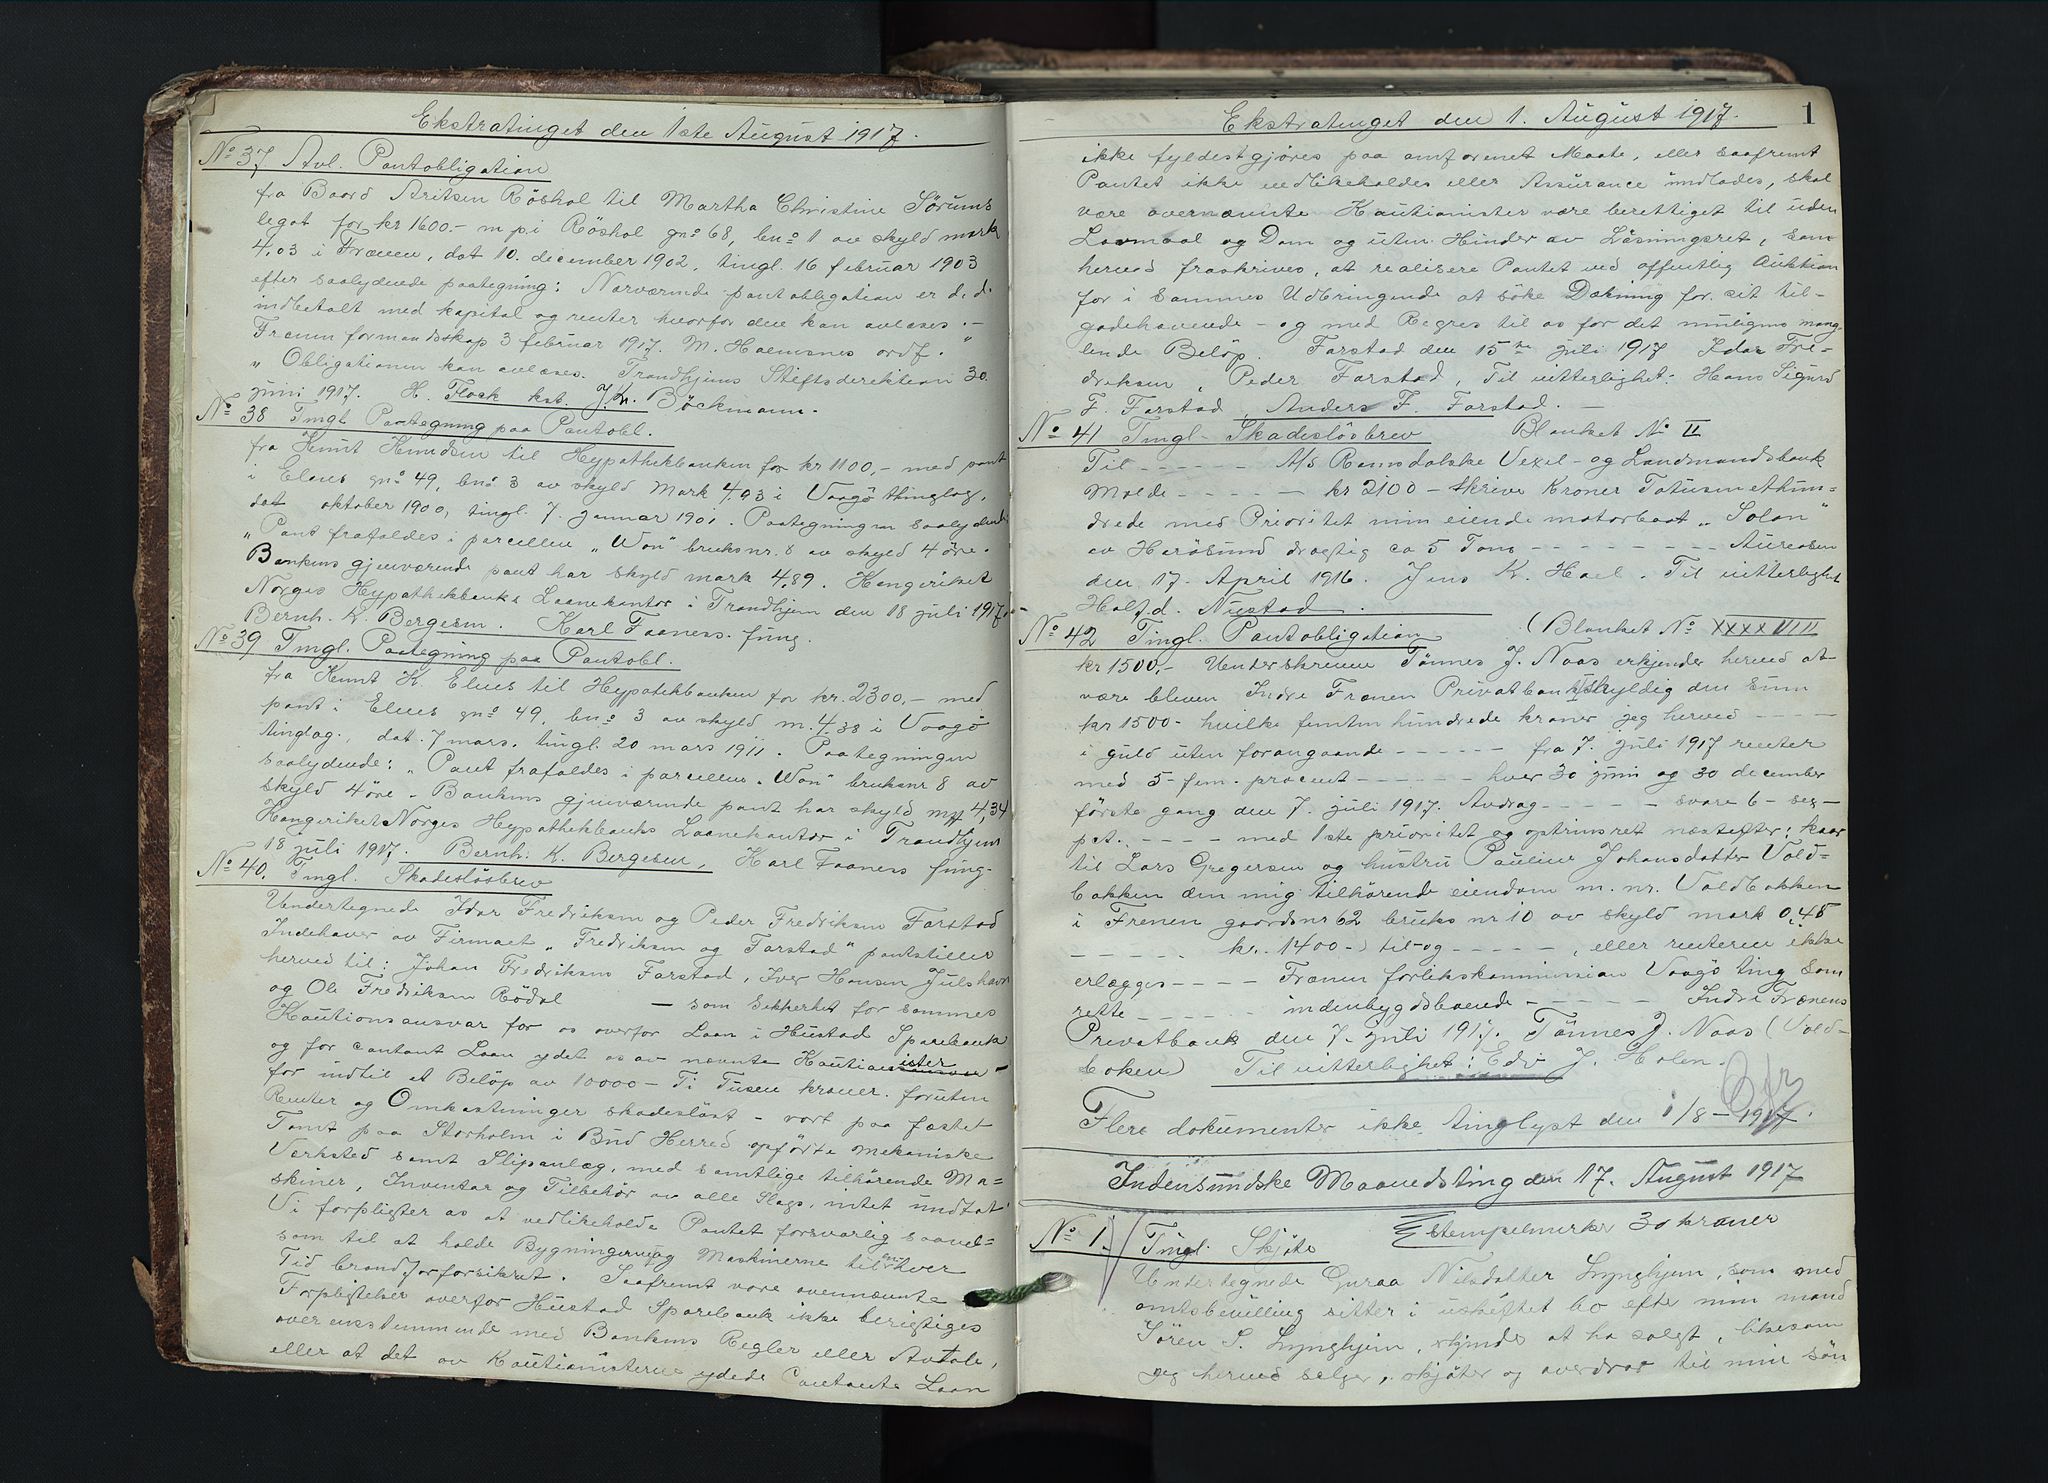 Ekstratinget den 1ste August 1917.
No 37 Avl. Pantobligation
fra Baard Aritsen Röshol til Martha Christine Sörums
legat for kr 1600.- m p. i Röshol gno 68, bno 1 av skyld mark
4.03 i Frænen, dat 10. december 1902, tingl. 16 februar 1903
efter saalydende paategning: Nærværende pantobligation er d. d.
indbetalt med kapital og renter hvorfor den kan avlæses. -
Frænen formandsskap 3 februar 1917. M. Halmsnes ordf. "
" Obligationen kan avlæses. Trondhjems Stiftsdirektion 30.
juni 1917. H. Flock kst. Böckmann.
No 38 Tingl. Paategning paa Pantobl.
fra Knut Knudsen til Hypothekbanken for kr 1100,- med pant
i Elnes gno 49, bno 3 av skyld mark 4.93 i Vaagö thinglag,
dat oktober 1900, tingl. 7. januar 1901. Paategningen saalydende:
" Pant frafaldes i parcellen „Won" bruksnr. 8 av skyld 4 öre.
Bankens gjenværende pant har skyld mark 4.89. Kongeriket
Norges Hypothekbanks Laanekontor i Trondhjem den 18 juli 1917.
Bernh. K. Bergesen. Karl Faaness. fung.
No 39 Tingl. Paategning paa Pantobl.
fra Knut K. Elnes til Hypotekbanken for kr. 2300,- med
pant i Elnes gno 49, bno 3 av skyld m. 4.38 i Vaagö
tinglag., dat. 7 mars, tingl. 20 mars 1911. Paategningen
saalydende: „Pant frafaldes i parcellen „Won" bruksnr 8 av
skyld 4 öre. Bankens gjenværende pant har skyld m 4,34
Kongeriket Norges Hypothekbanks Laanekontor i Trondhjem
18 juli 1917. Bernh. K. Bergesen, Karl Faaness fung.
No 40. Tingl. Skadeslösbrev
Undertegnede Idar Fredriksen og Peder Fredriksen Farstad
Indehaver av Firmaet „Fredriksen og Farstad" pantstiller
herved til: Johan Fredriksen Farstad, Iver Hansen Julshavn
og Ole Fredriksen Rödal — som Sikkerhet for sammes
Kautionsansvar for os overfor Laan i Hustad Sparebank
og for contant Laan ydet os av nævnte Kautionister
for indtil et Belöp av 10000 - Ti Tusen kroner. foruten
Renter og Omkostninger skadeslöst - vort paa fæstet
Tomt paa Storholm i Bud Herred opförte mekaniske
Værksted samt Slipanlæg, med samtlige tilhörende Ma=
skiner, Inventar og Tilbehör av alle Slags, intet undtat
Vi forpligter os at vedlikeholde Pantet forsvarlig saavel=
som til at holde Bygningerne og Maskinerne til enhver
Tid brandforforsikret. Saafremt vore ovennævnte
Forpligtelser overfor Hustad Sparebank ikke berigtiges
overensstemmende med Bankens Regler eller Avtale,
eller at det av Kautionisterne ydede Contante Laan
Ekstratinget den 1. August 1917. 1
ikke fyldestgjöres paa omforenet Maate, eller saafremt
Pantet ikke vedlikeholdes eller Assurance undlades, skal
være ovennævnte Kautionister være berettiget til uden
Lovmaal og Dom og uten Hinder av Lösningsret, som
herved fraskrives, at realisere Pantet ved offentlig Auktion
for i sammes Udbringende at söke Dækning for sit til-
godehavende - og med Regres til os for det muligens mang-
lende Belöp. Farstad den 15de juli 1917 Idar Fre-
driksen, Peder Farstad, Til vitterlighet: Hans Sigurd
F. Farstad, Anders F. Farstad. -
No 41 Tingl. Skadeslösbrev Blanket No II
Til - - - - - A/s Romsdalske Vexel- og Landmandsbank
Molde - - - - - kr 2100 - skrive Kroner Totusenethun-
drede med Prioritet min eiende motorbaat „Solon"
av Harösund drægtig ca 5 Tons - - - - - - - - Aureosen
den 17. April 1916. Jens K. Hoel. Til vitterlighet
Halfd. Nustad.
No 42 Tingl. Pantobligation (Blanket No XXXXVIII
kr 1500,- Underskreven Tönnes J. Naas erkjender herved at
være bleven Indre Frænen Privatbank skyldig den Sum
kr 1500- hvilke femten hundrede kroner jeg herved - - -
i guld uten forangaaende - - - - - fra 7. juli 1917 renter
med 5-fem-procent - - - - - hver 30 juni og 30 december
förste gang den 7. juli 1917. Avdrag - - - - - svare 6- seg-
pct. - - - - med 1ste prioritet og optrinsret næstefter; kaar
til Lars Gregersen og hustru Pauline Johansdatter Vold-
bakken den mig tilhörende eiendom m. nr. Voldbakken
i Frenen gaardsnr 62 bruksnr 10 av skyld mark 0,48
- - - - - kr. 1400-) til-og - - - - -, eller renterne ikke
erlægges - - - - Frænen forlikskommission Vaagö ting som
rette - - - - - indenbygdsboende - - - - - Indre Frænens
Privatbank den 7. juli 1917. Tönnes J. Naas (Vold-
boken) Til vitterlighet: Edv J. Holen.
Flere dokumenter ikke tinglyst den 1/8 - 1917.
Indensundske Maanedsting den 17. August 1917
No 1. Tingl. Skjöte Stempelmerke 30 kroner
Undertegnede Guraa Nilsdatter Lynghjem, som med
amtsbevilling sitter i uskiftet bo efter min mand
Sören S. Lynghjem, erkjender at ha solgt, likesom
jeg herved selger, skjöter og overdrar til min sön